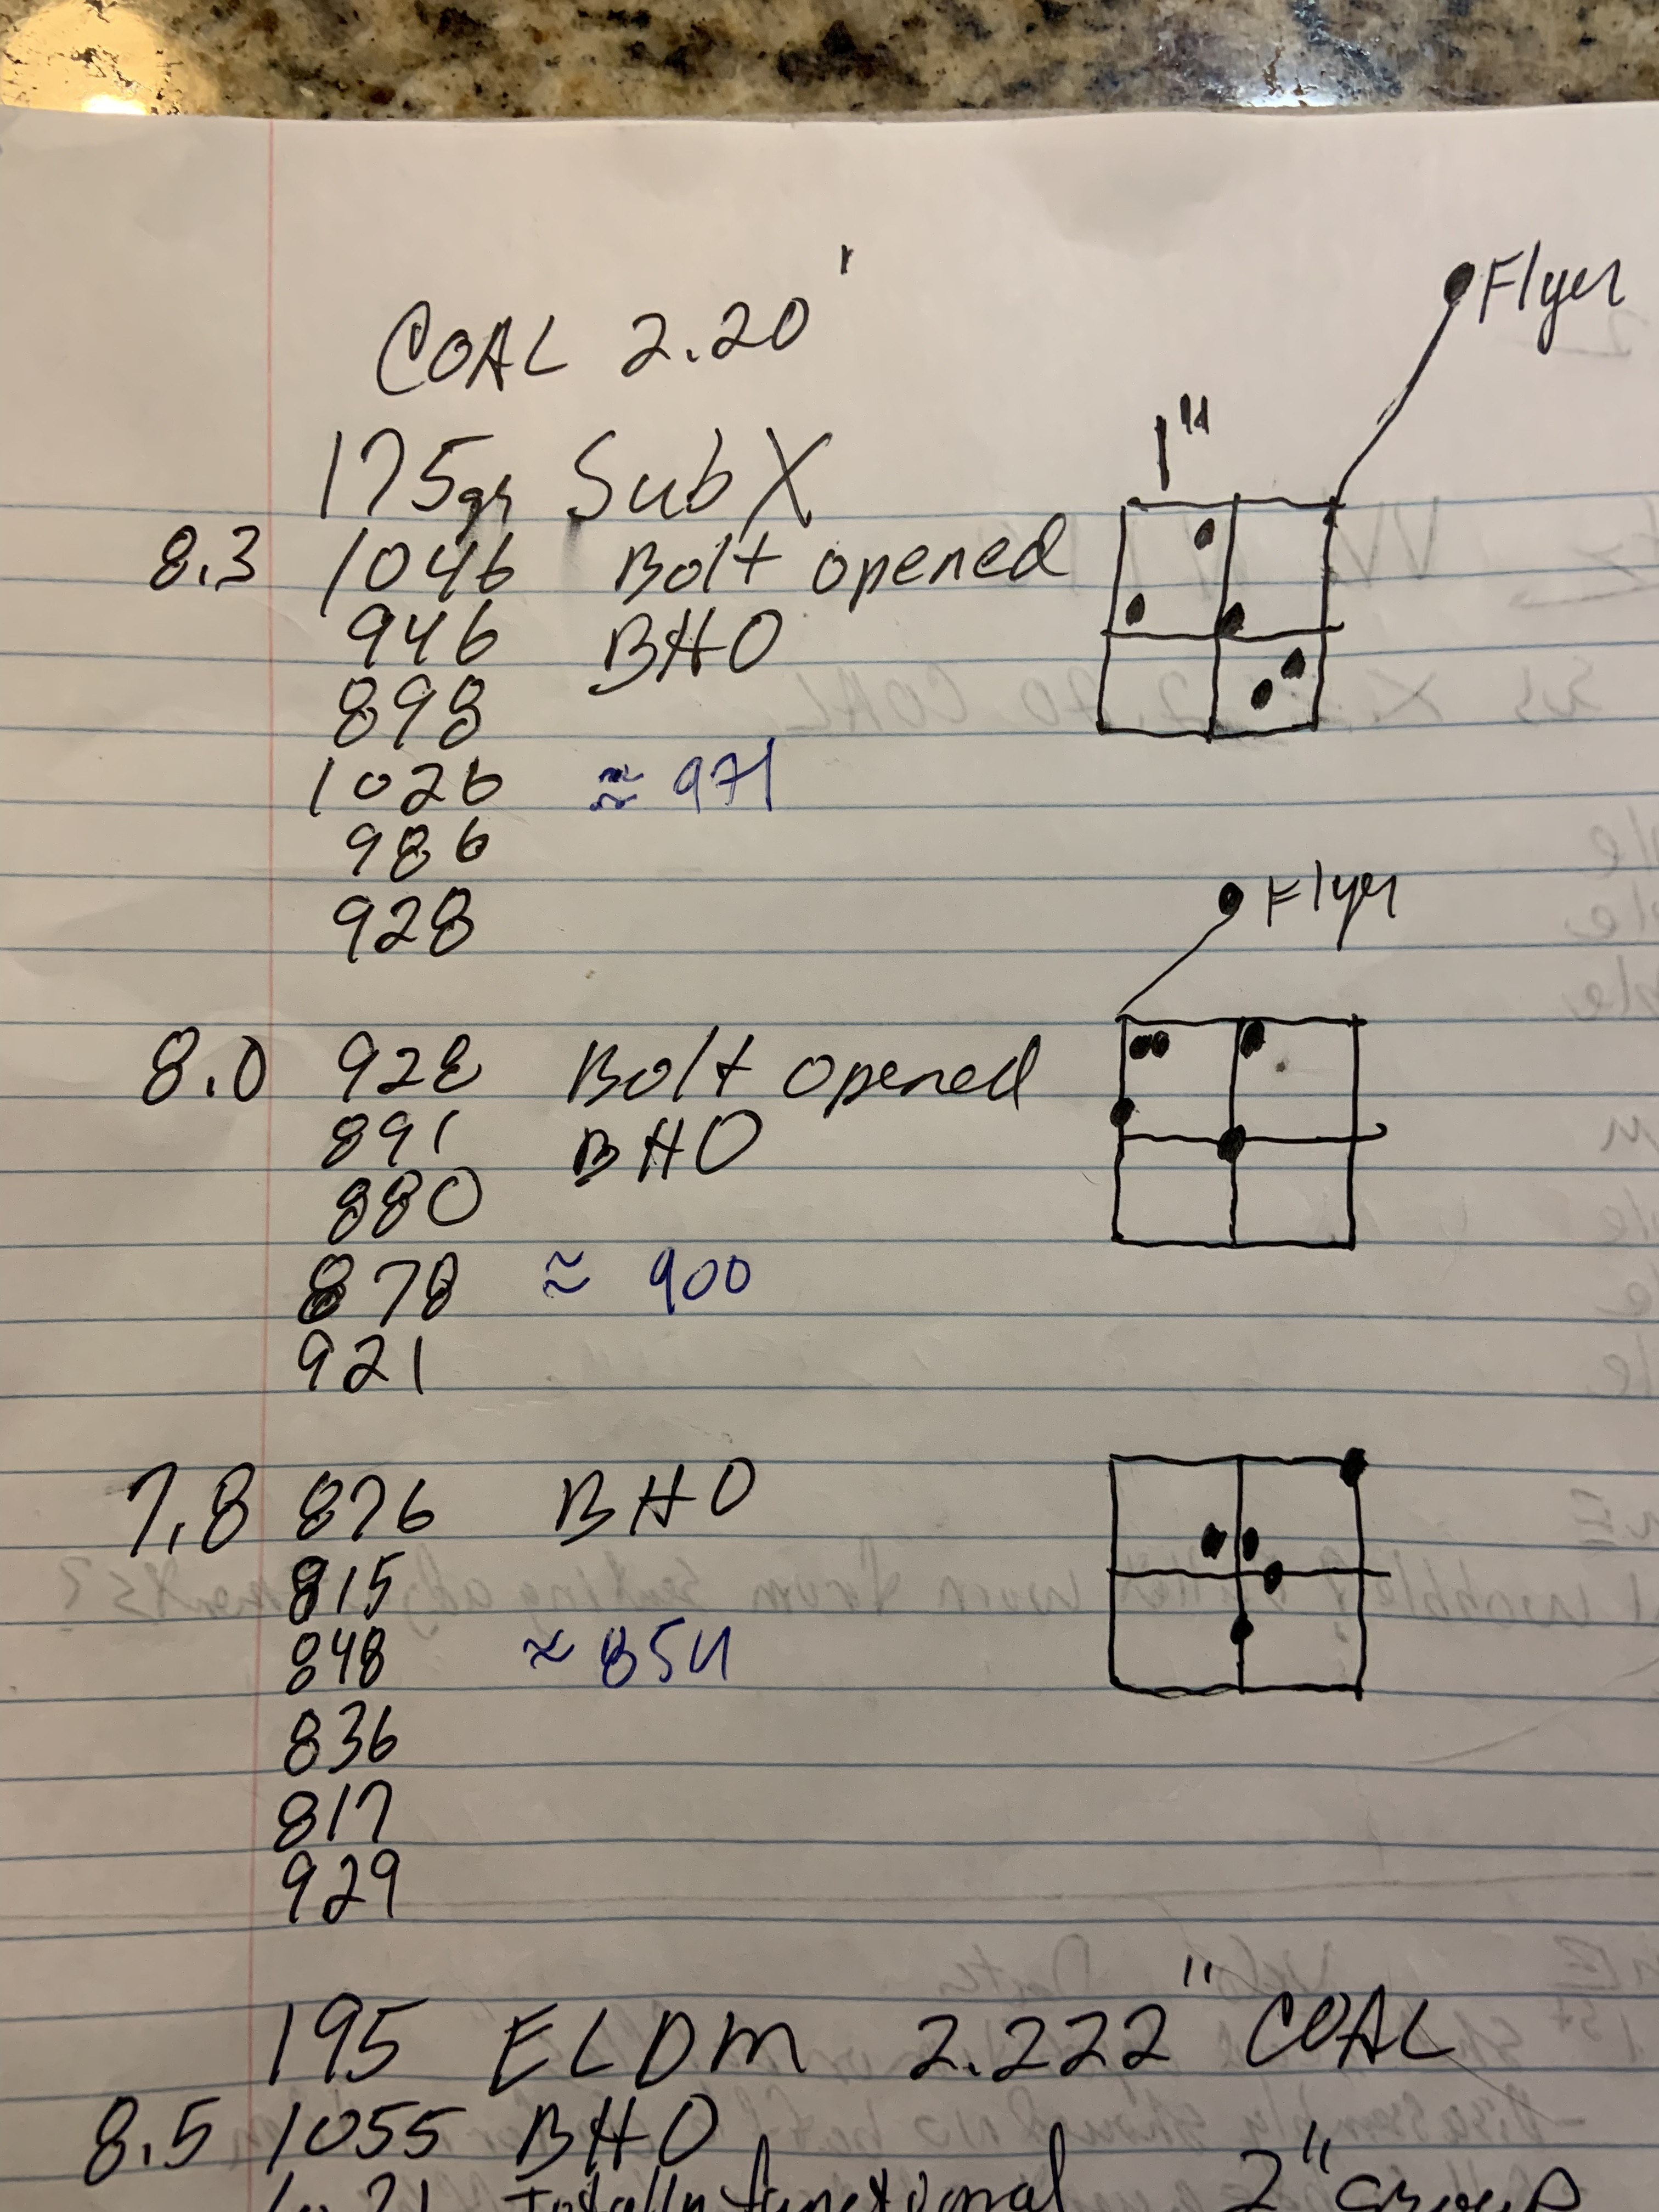 COAL 2.20"
175gr Sub X
8.3 1046 Bolt opened
946 BHO
898
1026 ≈ 971
986
928
Flyer
1"
8.0 928 Bolt opened
891 BHO
880
878 ≈ 900
921
Flyer
7.8 876 BHO
815
848 ≈ 854
836
817
929
195 ELDM 2.222" COAL
8.5 1055 BHO
Totally functional 2" group